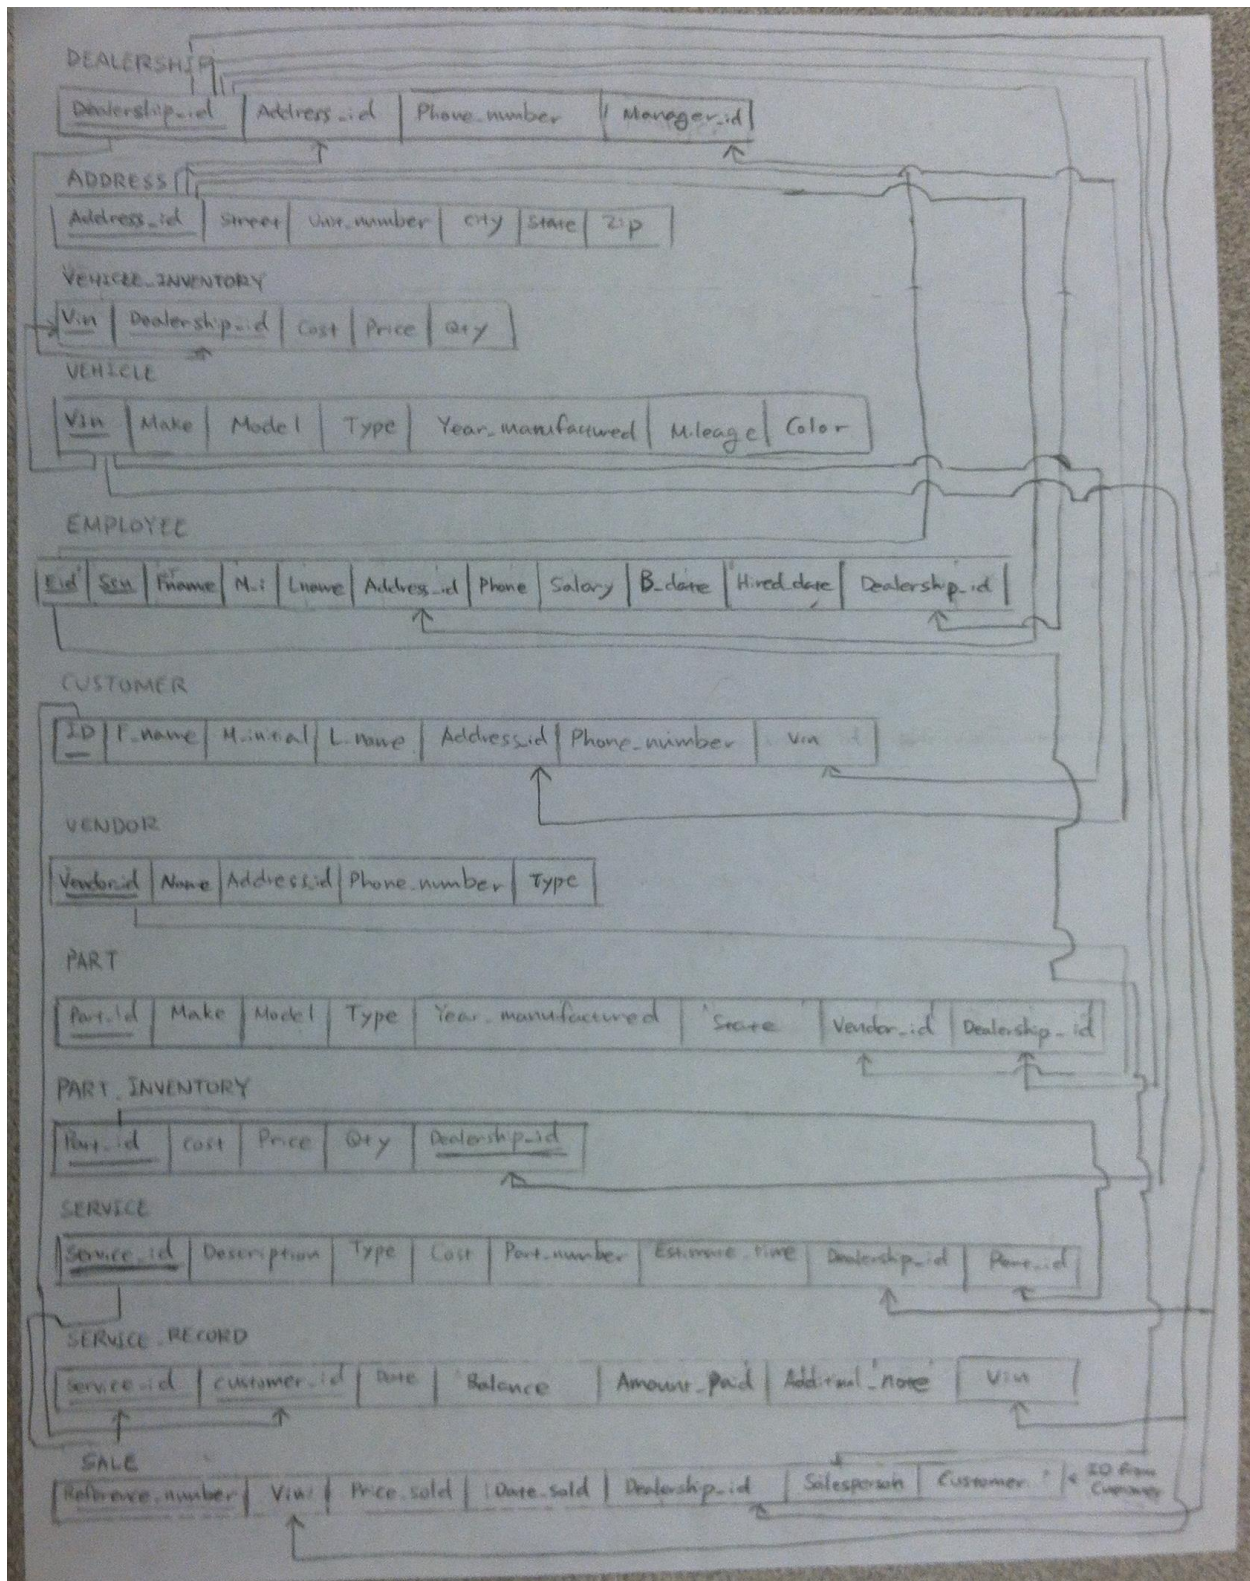 DEALERSHIP
Dealership_id Address_id Phone_number Manager_id
ADDRESS
Address_id Street Unit_number City State Zip
VEHICLE_INVENTORY
Vin Dealership_id Cost Price Qty
VEHICLE
Vin Make Model Type Year_manufactured Mileage Color
EMPLOYEE
Eid Ssn Fname M.i Lname Address_id Phone Salary B_date Hired_date Dealership_id
CUSTOMER
ID F_name M_initial L_name Address_id Phone_number Vin
VENDOR
Vendor_id Name Address_id Phone_number Type
PART
Part_id Make Model Type Year_manufactured State Vendor_id Dealership_id
PART_INVENTORY
Part_id Cost Price Qty Dealership_id
SERVICE
Service_id Description Type Cost Part_number Estimate_time Dealership_id Part_id
SERVICE_RECORD
Service_id Customer_id Date Balance Amount_paid Vin
SALE
Reference_number Vin Price_sold Date_sold Dealership_id Salesperson Customer ID from Customer